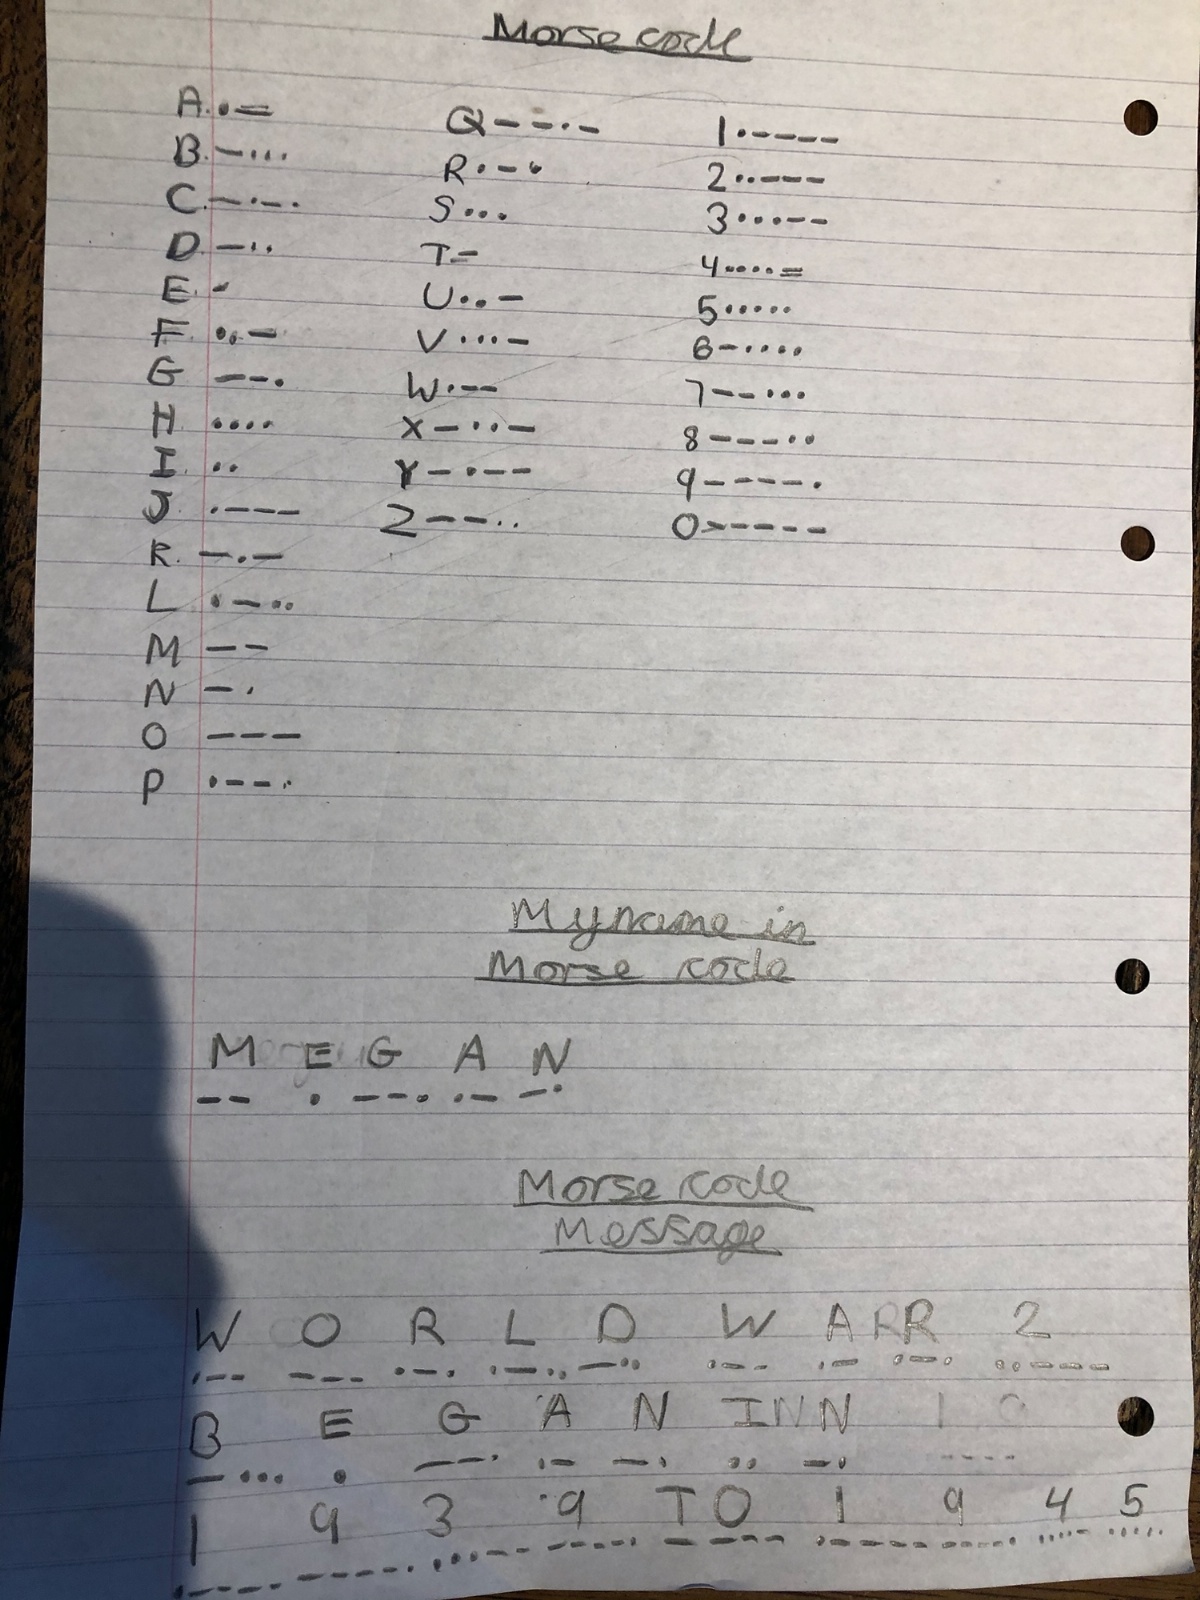 Morse code
A. • —
B. — • • •
C. — • — •
D. — • •
E. •
F. • • —
G — — •
H • • • •
I. • •
J • — — —
R. — • —
L • — • •
M — —
N — •
O — — —
P • — — •
Q — — • —
R • — •
S • • •
T —
U • • —
V • • • —
W • — —
X — • • —
Y — • — —
Z — — • •
1 • — — — —
2 • • — — —
3 • • • — —
4 • • • • —
5 • • • • •
6 — • • • •
7 — — • • •
8 — — — • •
9 — — — — •
0 — — — — —
My name in
Morse code
M E G A N
— — • — — • • — — •
Morse code
Message
W O R L D W A R 2
• — — — — — • — • • — • • — • • • — — • — • — • • • — — —
B E G A N I N
— • • • • — — • • — — • • • — •
1 9 3 9 T O 1 9 4 5
• — — — — — — — — • • • • — — — — — — • — — — — • — — — — — — — — • • • • • — • • • • •